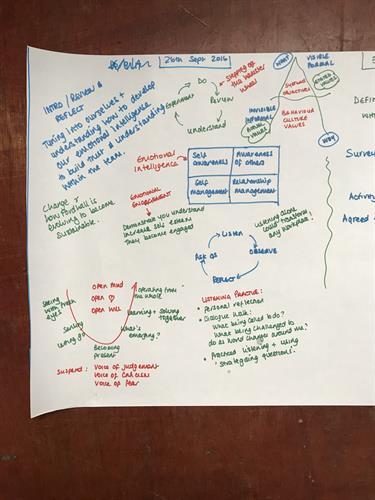 26th Sept 2016
INTRO / REVIEW &
REFLECT
Tuning into ourselves +
understanding how to develop
our emotional intelligence
to build trust & understanding
within the team.
Change +
how Fordhall is
evolving to become
sustainable.
Do
Review
Understand
Experiment
Stepping off the hamster
wheel
WHAT
VISIBLE
FORMAL
STATED
VALUES
SYSTEMS
OBJECTIVES
INVISIBLE
INFORMAL
ACTUAL
VALUES
BEHAVIOUR
CULTURE
VALUES
WHY
Emotional
Intelligence
Self
Awareness
Awareness
of others
Self
management
Relationship
management
EMOTIONAL
ENGAGEMENT
Demonstrate you understand
Increase self esteem
They become engaged
Listen
OBSERVE
REFLECT
ASK Qs
Listening alone
could transform
any workplace!
OPEN MIND
OPEN ♡
OPEN WILL
Seeing
with fresh
eyes
Sensing
Letting go
Becoming
present
Operating from
the whole
Learning + solving
together
What's
emerging?
SUSPEND: VOICE OF JUDGEMENT
VOICE OF CYNICISM
VOICE OF FEAR
LISTENING PRACTICE:
• Personal reflection
• Dialogue Walk:
What being called to do?
What being challenged to
do as world changes around me?
• Practised listening + using
strategising questions.
DEFIN
WITH
Survey
Activity
Agreed